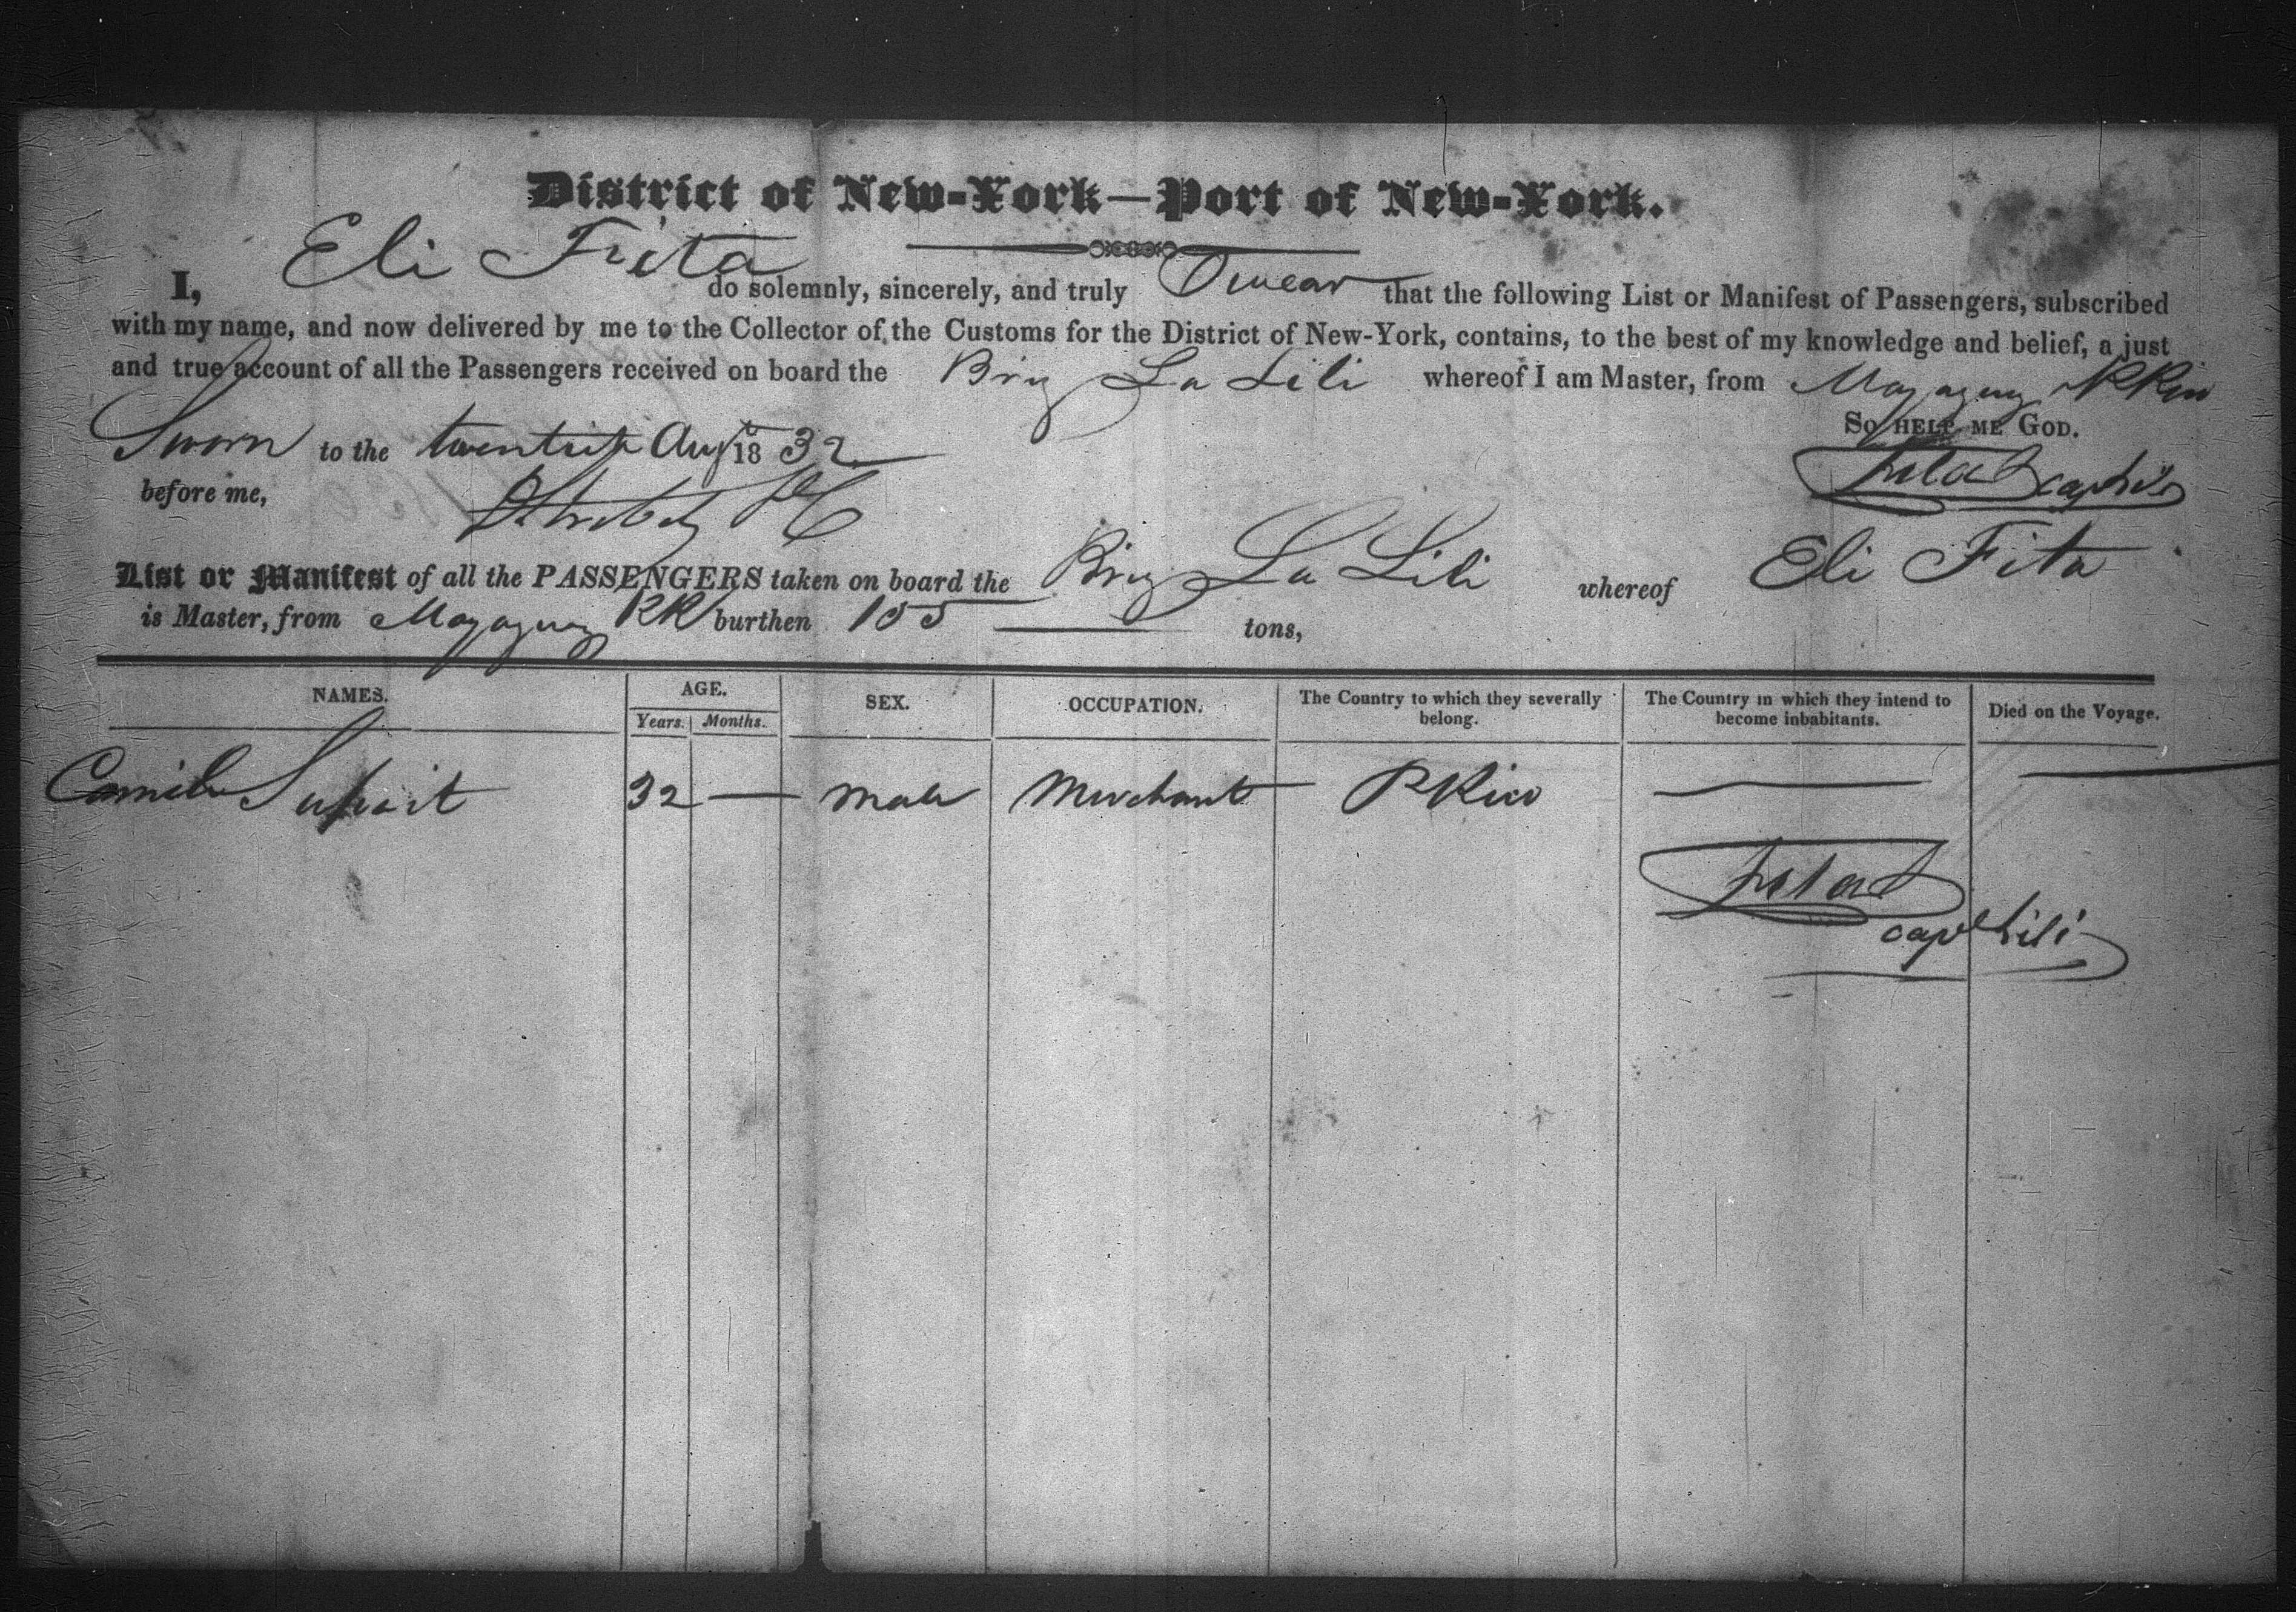 District of New-York—Port of New-York.
I, Eli Fita do solemnly, sincerely, and truly Swear that the following List or Manifest of Passengers, subscribed
with my name, and now delivered by me to the Collector of the Customs for the District of New-York, contains, to the best of my knowledge and belief, a just
and true account of all the Passengers received on board the Brig La Lili whereof I am Master, from Mayaguez P Rico
So help me God.
Sworn to the twentieth Augt 1832
before me,
List or Manifest of all the PASSENGERS taken on board the Brig La Lili whereof Eli Fita
is Master, from Mayaguez PR burthen 155 tons,
NAMES. AGE. SEX. OCCUPATION. The Country to which they severally belong. The Country in which they intend to become inhabitants. Died on the Voyage.
Years. Months.
32 — Male Merchant P Rico — —
capt Lili